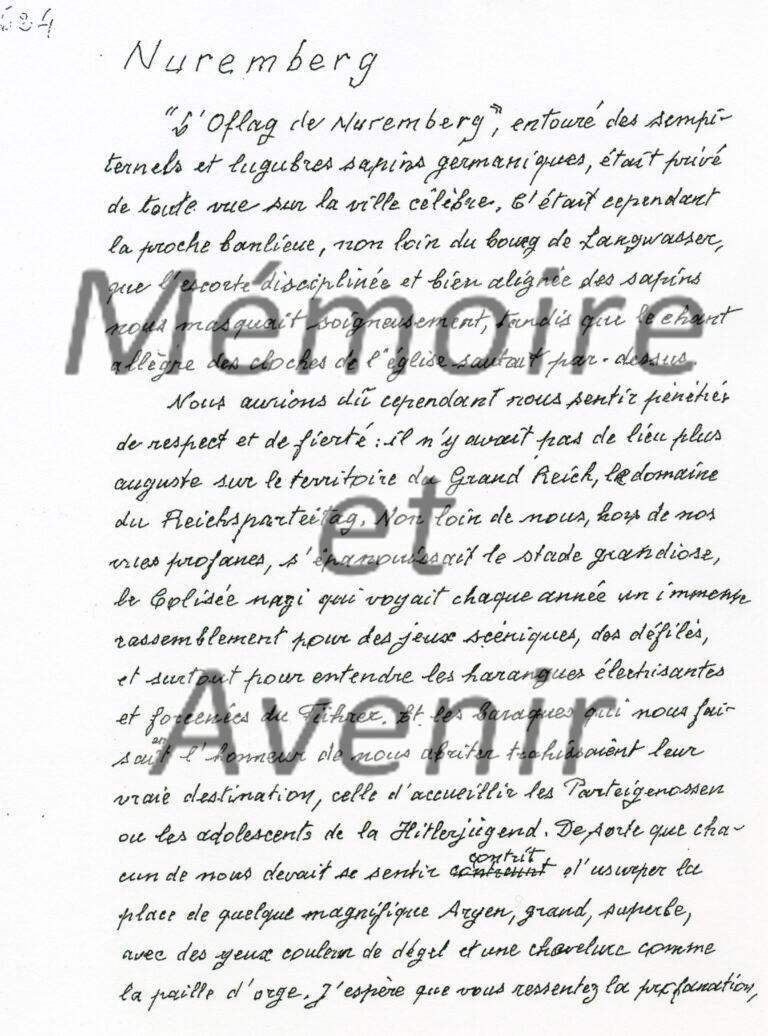 584
Nuremberg
"L'Oflag de Nuremberg", entouré des sempi-
ternels et lugubres sapins germaniques, était privé
de toute vue sur la ville célèbre. C'était cependant
la proche banlieue, non loin du bourg de Langwasser,
que l'escorte disciplinée et bien alignée des sapins
nous masquait soigneusement, tandis que le chant
allègre des cloches de l'église sautait par-dessus.
Nous aurions dû cependant nous sentir pénétrés
de respect et de fierté : il n'y avait pas de lieu plus
auguste sur le territoire du Grand Reich, le domaine
du Reichsparteitag. Non loin de nous, hors de nos
vues profanes, s'épanouissait le stade grandiose,
le Colisée nazi qui voyait chaque année un immense
rassemblement pour des jeux scéniques, des défilés,
et surtout pour entendre les harangues électrisantes
et forcenées du Führer. Et les baraques qui nous fai-
saient l'honneur de nous abriter trahissaient leur
vraie destination, celle d'accueillir les Parteigenossen
ou les adolescents de la Hitlerjügend. De sorte que cha-
cun de nous devait se sentir contrit d'usurper la
place de quelque magnifique Aryen, grand, superbe,
avec des yeux couleur de dégel et une chevelure comme
la paille d'orge. J'espère que vous ressentez la profanation,
Mémoire
et
Avenir